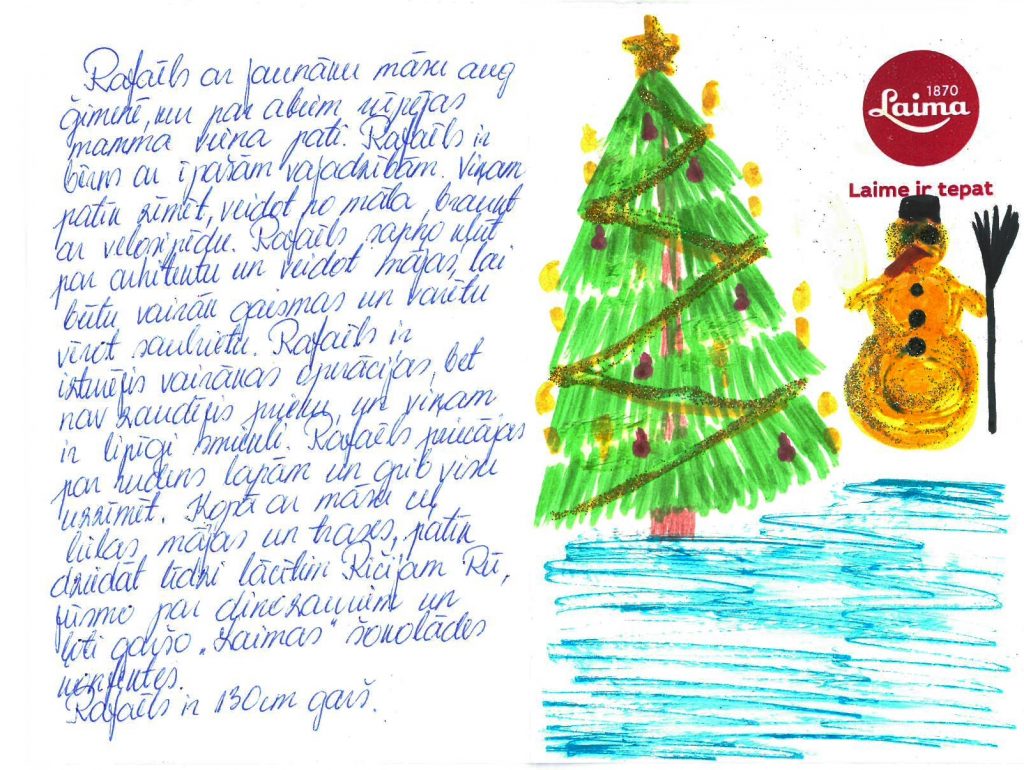 Rafaēls ar jaunāku māsu aug
ģimenē, kur par abiem rūpējas
mamma viena pati. Rafaēls ir
bērns ar īpašām vajadzībām. Viņam
patīk zīmēt, veidot no māla, braukt
ar velosipēdu. Rafaēls sapņo kļūt
par arhitektu un veidot mājas, lai
būtu vairāk gaismas un varētu
vērot saulrietu. Rafaēls ir
izturējis vairākas operācijas, bet
nav zaudējis prieku, un viņam
ir lipīgi smiekli. Rafaēls priecājas
par rudens lapām un grib visu
uzzīmēt. Kopā ar māsu ceļ
lielas mājas un trases, patīk
dziedāt līdzi lācītim Ričijam Rū,
jūsmo par dinozauriem un
ļoti garšo "Laimas" šokolādes
konfektes.
Rafaēls ir 130cm garš.
1870
Laima
Laime ir tepat